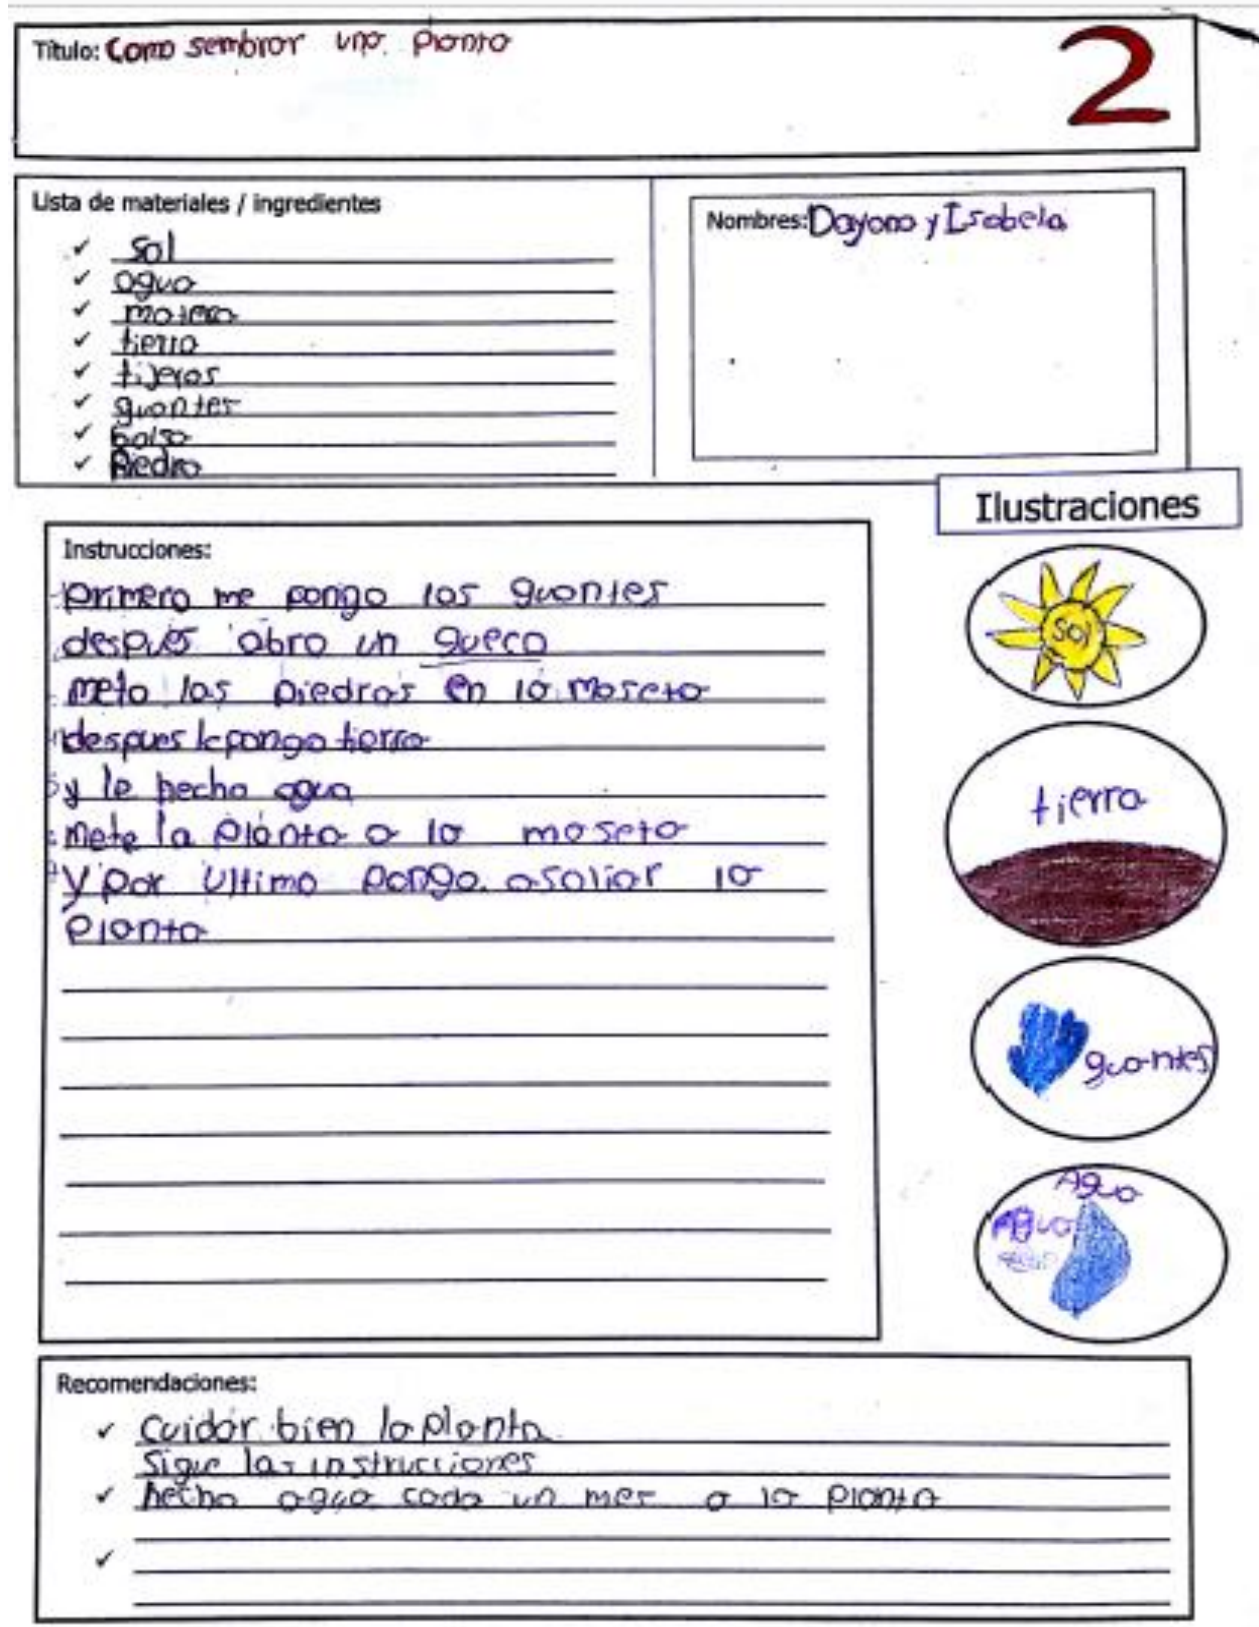 Título: Como sembrar una planta
2
Lista de materiales / ingredientes
sol
agua
matera
tierra
tijeras
guantes
bolsa
Piedra
Nombres: Dayana y Isabela
Ilustraciones
Instrucciones:
primero me pongo los guantes
despues abro un gueco
meto las piedras en la maseta
despues le pongo tierra
y le hecho agua
mete la planta a la maseta
y por ultimo pongo asoliar la
planta
Sol
tierra
guantes
Agua
Agua
Recomendaciones:
Cuidar bien la planta
Sigue las instrucciones
hecha agua cada un mes a la planta